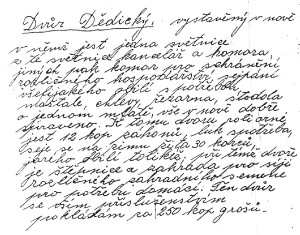 Dvůr Dědický, vystavěný v nově
v němž jest jedna světnice
z té světnice kancelář a komora,
jiných pak komor pro schránění
rozličného hospodářství, sejpání
všelijakého obilí s potřebu,
maštale, chlévy, řezárna, stodola
o jednom mlatě, vše v nově dobře
spraveno. K tomu dvoru polí orné
jest 12 kop záhonů, luk spotřeba,
seje se na zimu žita 30 korců,
jarého obilí tolikéž; při témž dvoře
je štěpnice a zahrada pro sítí
rozličného zahradního semene
pro potřebu domácí. Ten dvůr
se vším příslušenstvím
pokládám za 250 kop grošů.